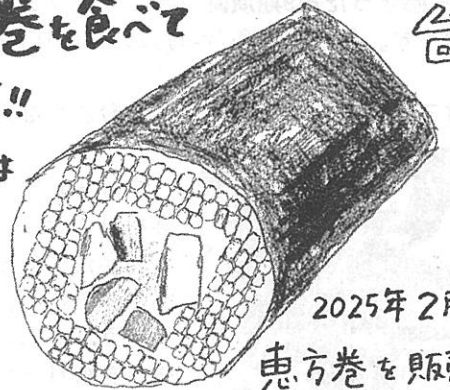 巻を食べて
!!
は
2025年2月
恵方巻を販